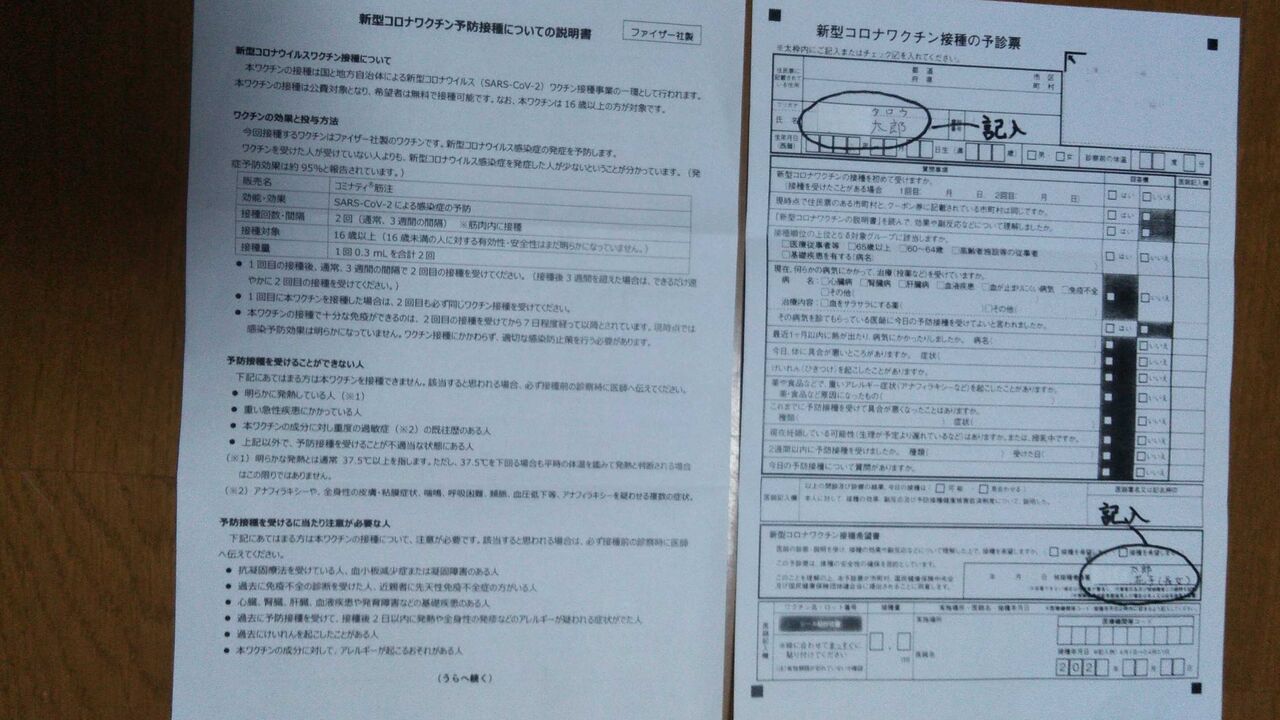 新型コロナワクチン予防接種についての説明書
ファイザー社製
新型コロナウイルスワクチン接種について
本ワクチンの接種は国と地方自治体による新型コロナウイルス（SARS-CoV-2）ワクチン接種事業の一環として行われます。
本ワクチンの接種は公費対象となり、希望者は無料で接種可能です。なお、本ワクチンは 16 歳以上の方が対象です。
ワクチンの効果と投与方法
今回接種するワクチンはファイザー社製のワクチンです。新型コロナウイルス感染症の発症を予防します。
ワクチンを受けた人が受けていない人よりも、新型コロナウイルス感染症を発症した人が少ないということが分かっています。（発
症予防効果は約 95％と報告されています。）
販売名 コミナティ®筋注
効能・効果 SARS-CoV-2 による感染症の予防
接種回数・間隔 2 回（通常、3 週間の間隔） ※筋肉内に接種
接種対象 16 歳以上（16 歳未満の人に対する有効性・安全性はまだ明らかになっていません。）
接種量 1 回 0.3 mL を合計 2 回
● 1 回目の接種後、通常、3 週間の間隔で 2 回目の接種を受けてください。（接種後 3 週間を超えた場合は、できるだけ速
やかに 2 回目の接種を受けてください。）
● 1 回目に本ワクチンを接種した場合は、2 回目も必ず同じワクチン接種を受けてください。
● 本ワクチンの接種で十分な免疫ができるのは、2 回目の接種を受けてから 7 日程度経って以降とされています。現時点では
感染予防効果は明らかになっていません。ワクチン接種にかかわらず、適切な感染防止策を行う必要があります。
予防接種を受けることができない人
下記にあてはまる方は本ワクチンを接種できません。該当すると思われる場合、必ず接種前の診察時に医師へ伝えてください。
● 明らかに発熱している人（※1）
● 重い急性疾患にかかっている人
● 本ワクチンの成分に対し重度の過敏症（※2）の既往歴のある人
● 上記以外で、予防接種を受けることが不適当な状態にある人
（※1）明らかな発熱とは通常 37.5℃以上を指します。ただし、37.5℃を下回る場合も平時の体温を鑑みて発熱と判断される場合
はこの限りではありません。
（※2）アナフィラキシーや、全身性の皮膚・粘膜症状、喘鳴、呼吸困難、頻脈、血圧低下等、アナフィラキシーを疑わせる複数の症状。
予防接種を受けるに当たり注意が必要な人
下記にあてはまる方は本ワクチンの接種について、注意が必要です。該当すると思われる場合は、必ず接種前の診察時に医師
へ伝えてください。
● 抗凝固療法を受けている人、血小板減少症または凝固障害のある人
● 過去に免疫不全の診断を受けた人、近親者に先天性免疫不全症の方がいる人
● 心臓、腎臓、肝臓、血液疾患や発育障害などの基礎疾患のある人
● 過去に予防接種を受けて、接種後 2 日以内に発熱や全身性の発疹などのアレルギーが疑われる症状がでた人
● 過去にけいれんを起こしたことがある人
● 本ワクチンの成分に対して、アレルギーが起こるおそれがある人
（うらへ続く）
新型コロナワクチン接種の予診票
※太枠内にご記入またはチェック☑を入れてください。
住民票に
記載されて
いる住所
都 道
府 県
市 区
町 村
フリガナ タロウ
氏 名 太郎 記入
生年月日
（西暦） 年 月 日生（満 歳） □男 □女 診察前の体温 度 分
質問事項 回答欄 医師記入欄
新型コロナワクチンの接種を初めて受けますか。
（接種を受けたことがある場合 1回目： 月 日、2回目： 月 日） □はい □いいえ
現時点で住民票のある市町村と、クーポン券に記載されている市町村は同じですか。 □はい □いいえ
「新型コロナワクチンの説明書」を読んで、効果や副反応などについて理解しましたか。 □はい □いいえ
接種順位の上位となる対象グループに該当しますか。
□医療従事者等 □65歳以上 □60～64歳 □高齢者施設等の従事者
□基礎疾患を有する（病名： ） □はい □いいえ
現在、何らかの病気にかかって、治療（投薬など）を受けていますか。
病 名：□心臓病 □腎臓病 □肝臓病 □血液疾患 □血が止まりにくい病気 □免疫不全
□その他（ ）
治療内容：□血をサラサラにする薬（ ） □その他（ ） □いいえ
その病気を診てもらっている医師に今日の予防接種を受けてよいと言われましたか。 □はい □いいえ
最近1ヶ月以内に熱が出たり、病気にかかったりしましたか。 病名（ ） □いいえ
今日、体に具合が悪いところがありますか。 症状（ ） □いいえ
けいれん（ひきつけ）を起こしたことがありますか。 □いいえ
薬や食品などで、重いアレルギー症状（アナフィラキシーなど）を起こしたことがありますか。
薬・食品など原因になったもの（ ） □いいえ
これまでに予防接種を受けて具合が悪くなったことはありますか。
種類（ ） 症状（ ） □いいえ
現在妊娠している可能性（生理が予定より遅れているなど）はありますか。または、授乳中ですか。 □いいえ
2週間以内に予防接種を受けましたか。 種類（ ） 受けた日（ ） □いいえ
今日の予防接種について質問がありますか。 □いいえ
医師記入欄
以上の問診及び診察の結果、今日の接種は（□可能・□見合わせる）
本人に対して、接種の効果、副反応及び予防接種健康被害救済制度について、説明した。
医師署名又は記名押印
記入
新型コロナワクチン接種希望書
医師の診察・説明を受け、接種の効果や副反応などについて理解した上で、接種を希望しますか。（□接種を希望します・□接種を希望しません）
この予診票は、接種の安全性の確保を目的としています。
このことを理解の上、本予診票が市町村、国民健康保険中央会
及び国民健康保険団体連合会に提出されることに同意します。
年 月 日
太郎
花子（長女）
ワクチン名・ロット番号 接種量 実施場所・医師名・接種年月日
医師記入欄
シール貼付位置
※枠に合わせてまっすぐに
貼り付けてください
実施場所
医師名
医療機関等コード
接種年月日
202 年 月 日